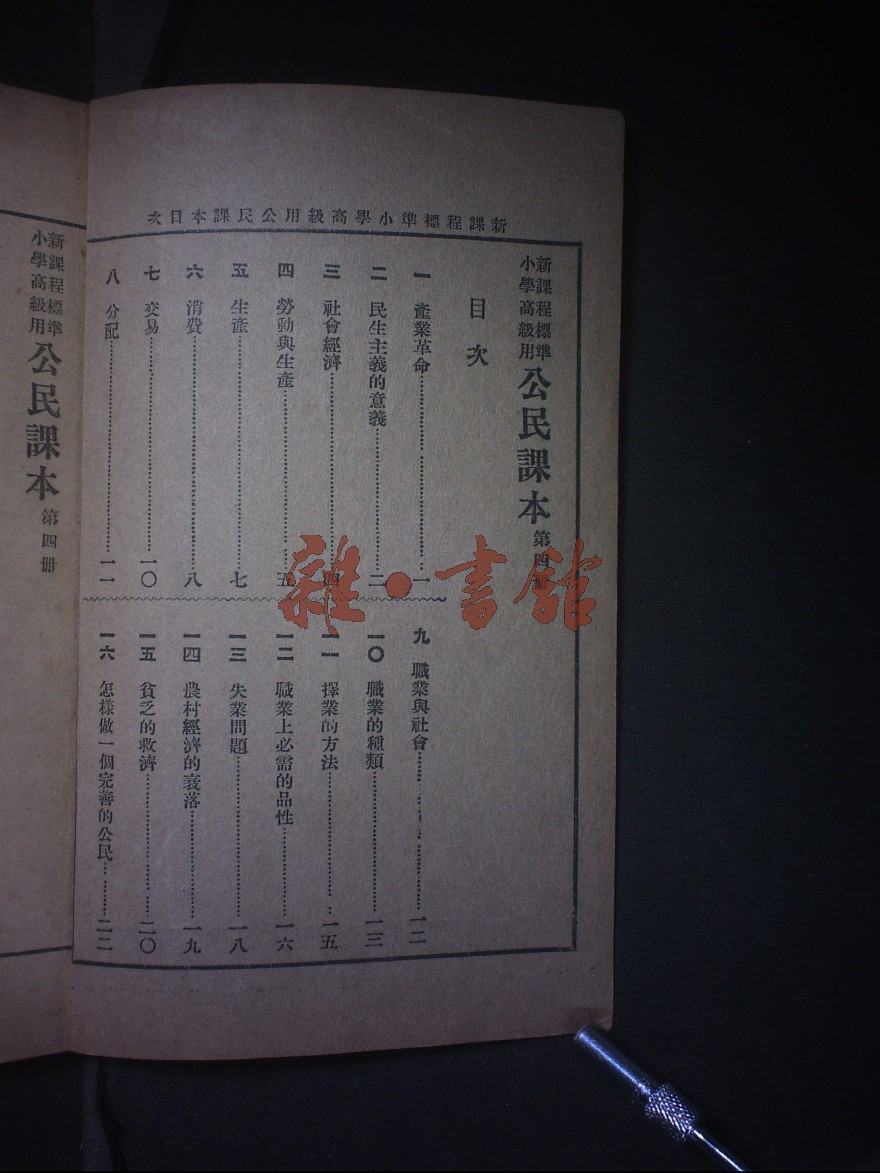 新課程標準小學高級用公民課本目次
新課程標準
小學高級用
公民課本 第四冊
目次
一 產業革命……一
二 民生主義的意義……二
三 社會經濟……四
四 勞動與生產……五
五 生產……七
六 消費……八
七 交易……一〇
八 分配……一一
九 職業與社會……一二
一〇 職業的種類……一三
一一 擇業的方法……一五
一二 職業上必需的品性……一六
一三 失業問題……一八
一四 農村經濟的衰落……一九
一五 貧乏的救濟……二〇
一六 怎樣做一個完善的公民……二二
新課程標準
小學高級用
公民課本 第四冊
雜·書館